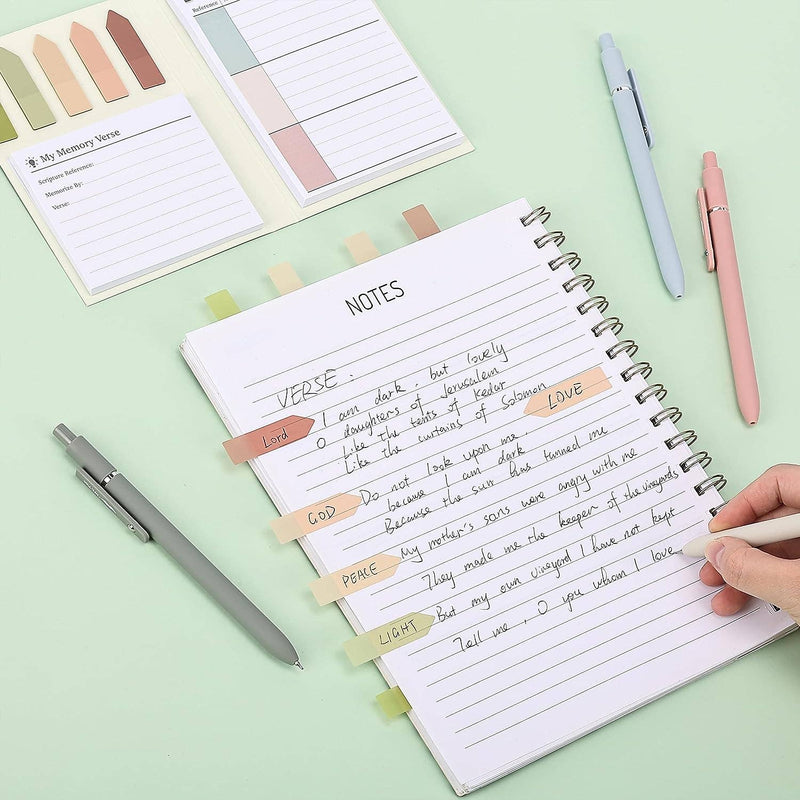 Reference
My Memory Verse
Scripture Reference:
Memorize By:
Verse:
NOTES
VERSE.
I am dark, but lovely
O daughters of Jerusalem
Like the tents of Kedar
Like the curtains of Solomon
LOVE
Lord
Do not look upon me
because I am dark
Because the sun has tanned me
GOD
My mother's sons were angry with me
They made me the keeper of the vineyards
PEACE
But my own vineyard I have not kept
Tell me, O you whom I love
LIGHT